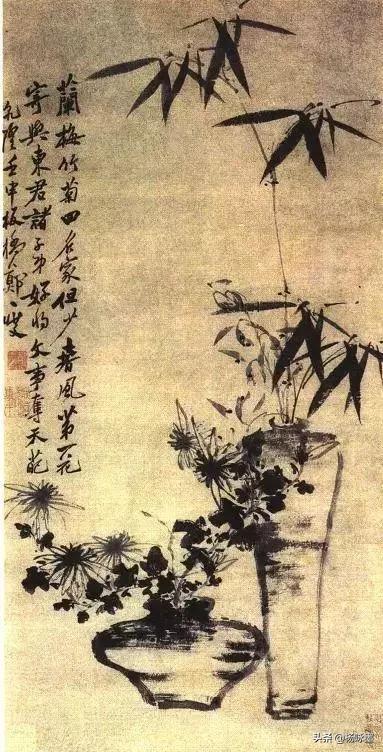 蘭梅竹菊四名家但少春風第一花
寄與東君諸子弟好將文事奪天葩
乾隆壬申板橋鄭燮
头条 @杨咏